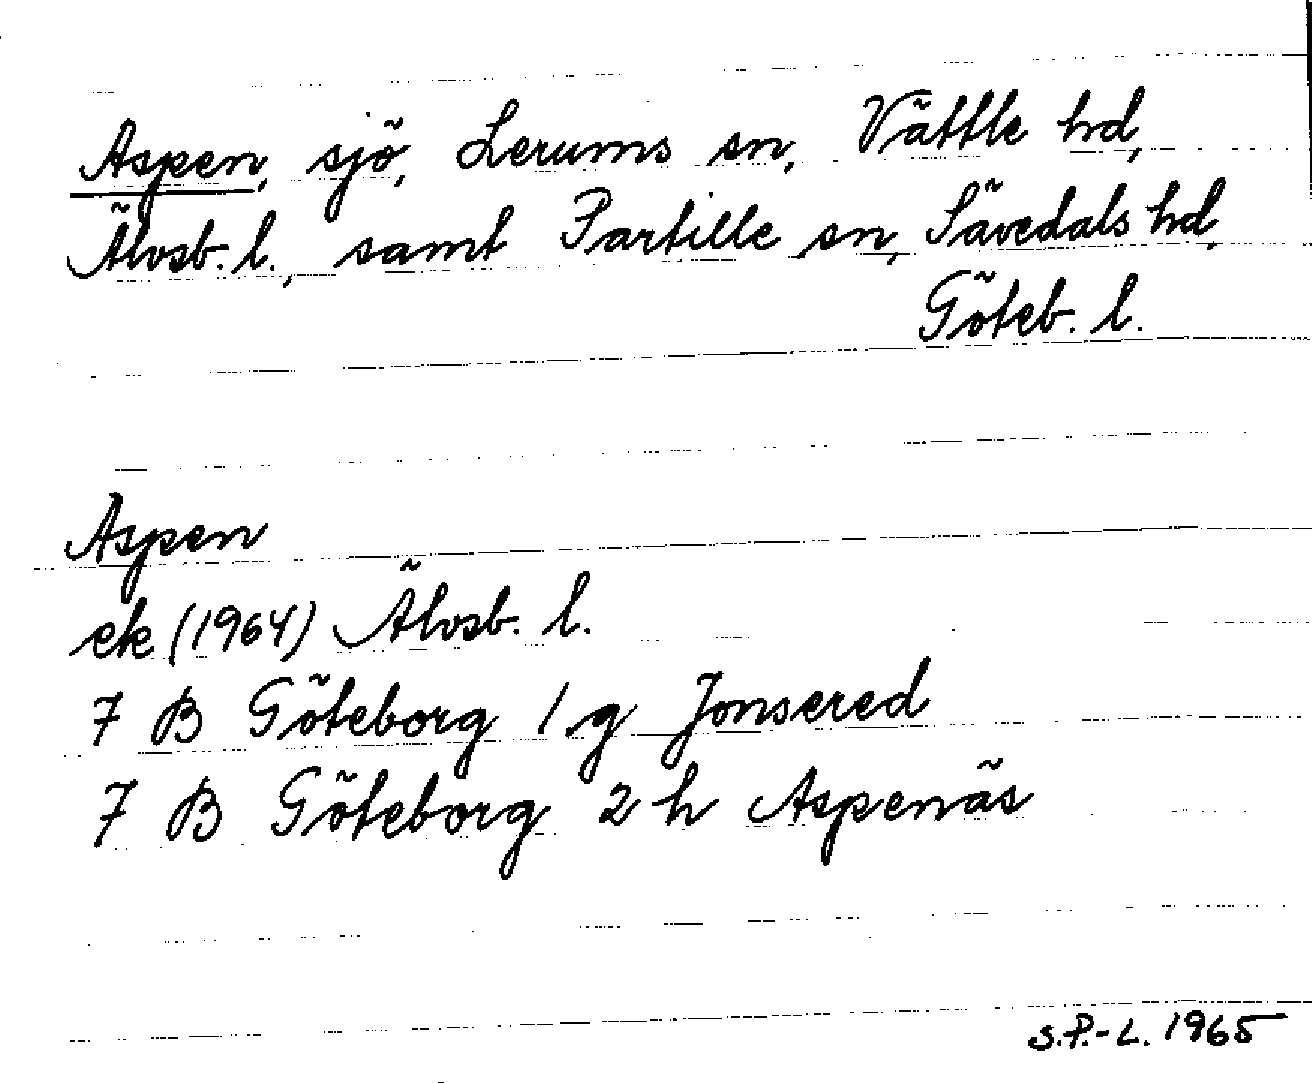 Aspen, sjö, Lerums sn, Vättle hd,
Älvsb. l., samt Partille sn, Sävedals hd,
Göteb. l.
Aspen
ek (1964) Älvsb. l.
7 B Göteborg 1 g Jonsered
7 B Göteborg 2 h Aspenäs
S.P.-L. 1965